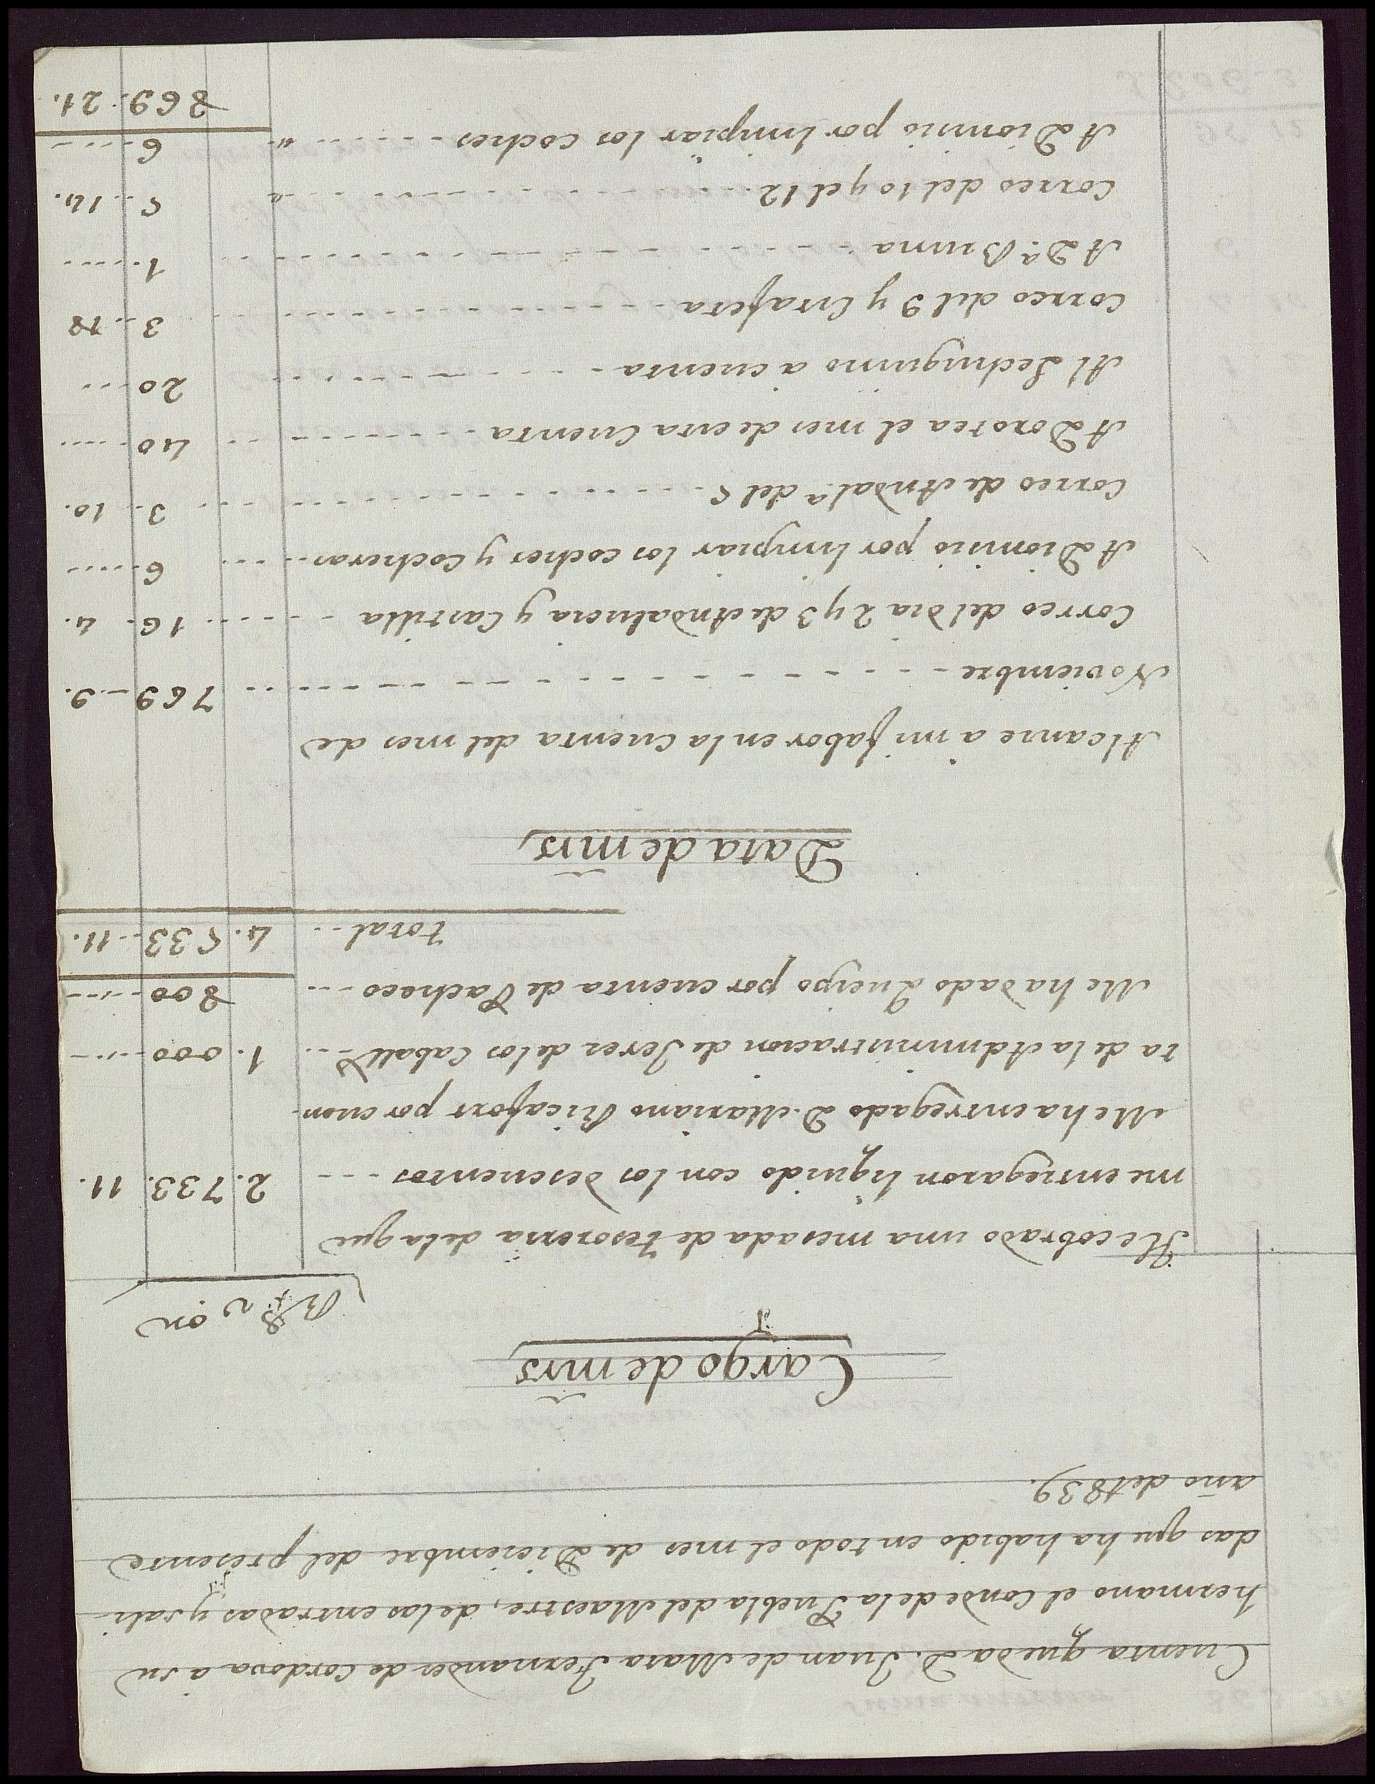 Cuenta que da D. Juan de Mata Fernandes de Cordova a su
hermano el Conde de la Puebla del Maestre, de las entradas y sali-
das que ha habido en todo el mes de Diciembre del presente
año de 1839.
Cargo de mrs
Rs von
He cobrado una mesada de tesoreria de la que
me entregaron liquido con los descuentos ... 2.733. 11.
Me ha entregado D. Mariano Ricafort por cuen-
ta de la Administracion de Jeres de los Caballs ... 1.000 ...
Me ha dado Queipo por cuenta de Pacheco ... 800 ...
total ... 4.533.. 11.
Data de mrs
Alcanse a mi fabor en la cuenta del mes de
Noviembre ... 769.. 9.
Correo del dia 2 y 3 de Andalucia y Castilla ... 16. 4.
A Dionisio por limpiar los coches y cocheras ... 6 ...
Correo de Andal.a del 5 ... 3.. 10.
A Dorotea el mes de esta cuenta ... 40 ...
Al Lechuguino a cuenta ... 20 ...
Correo del 9 y Estafeta ... 3.. 18
A D.a Bruna ... 1 ...
Correo del 10 y el 12 ... 5.. 14.
A Dionisio por limpiar los coches ... 6 ...
869. 21.